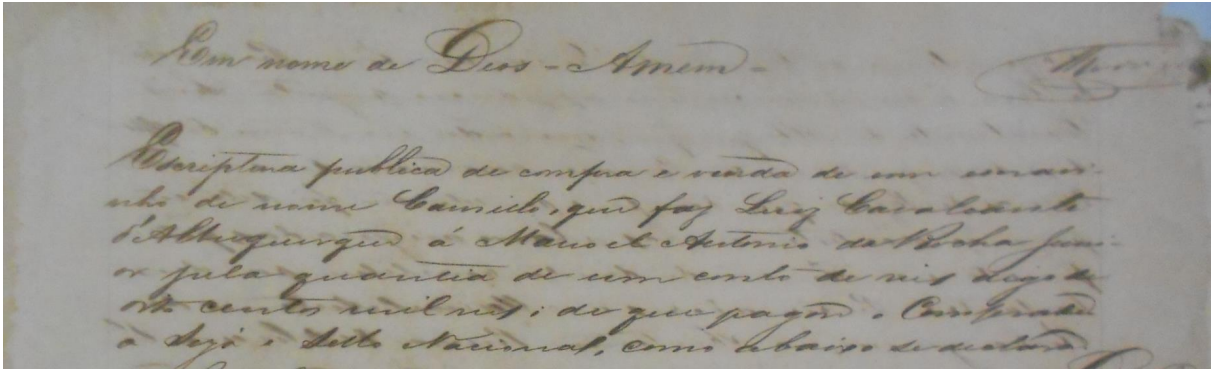 Em nome de Deos - Amem -
Escriptura publica de compra e venda de um escravi-
nho de nome Camilo, que faz Luiz Cavalcante
d'Albuquerque á Manoel Antonio da Rocha Juni-
or pela quantia de um conto de reis digo de
oito centos mil reis; de que pagou o Comprador
a Siza e Sello Nacional, como abaixo se declara